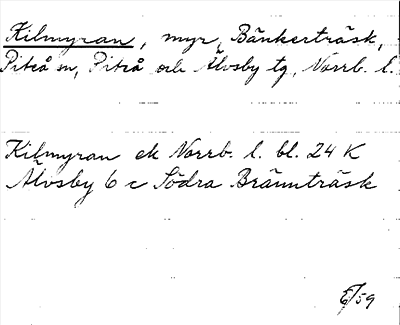 Kilmyran, myr, Bänkerträsk,
Piteå sn, Piteå och Älvsby tg, Norrb. l.
Kilmyran ek Norrb. l. bl. 24 K
Älvsby 6 c Södra Brännträsk
/59